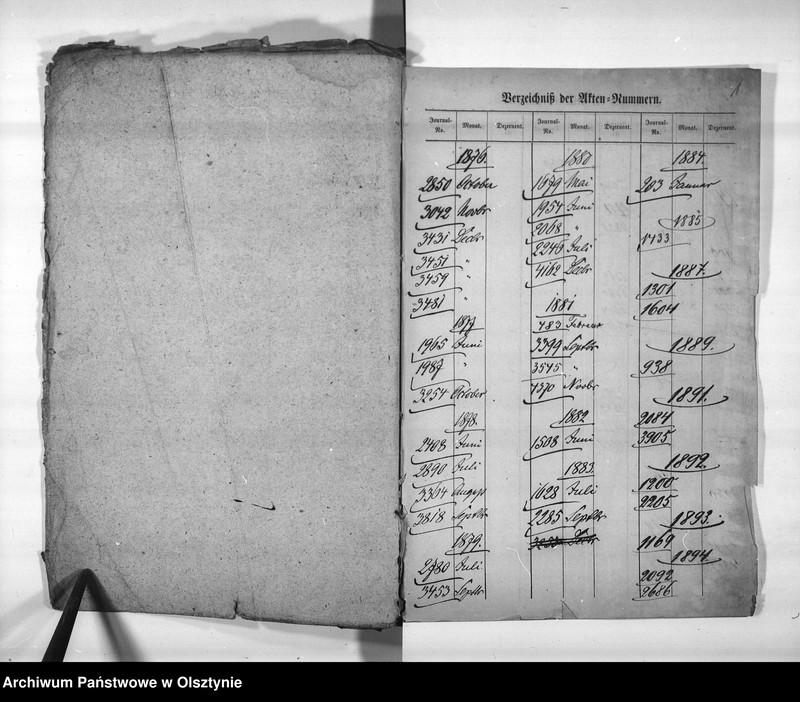 1
Verzeichniß der Akten-Nummern.
Journal-No. Monat. Dezernent. Journal-No. Monat. Dezernent. Journal-No. Monat. Dezernent.
1876.
2850 October
3042 Novbr
3431 Decbr
3451 "
3459 "
3481 "
1877
1965 Juni
1987 "
3254 October
1878.
2408 Juni
2890 Juli
3364 August
3818 Septbr
1879.
2780 Juli
3453 Septbr
1880
1679 Mai
1954 Juni
2068 "
2246 Juli
4162 Decbr
1881
483 Februar
3399 Septbr
3575 "
4370 Novbr
1882
1508 Juni
1883.
1628 Juli
2285 Septbr
1884.
203 Januar
1885
1433
1887.
1301
1604
1889.
938
1891.
2084
3905
1892.
1200
2205
1893.
1169
1894.
2092
2686
Archiwum Państwowe w Olsztynie